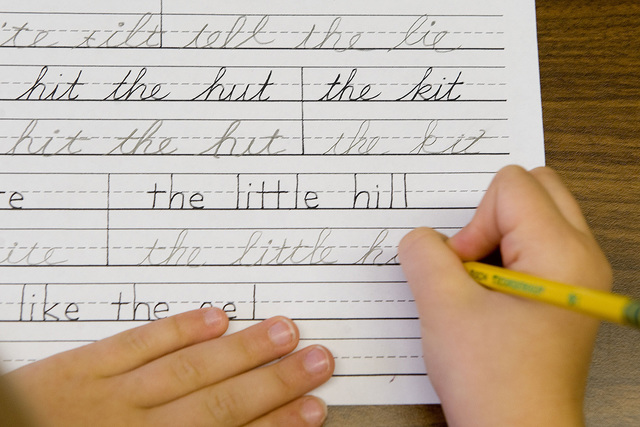 tilt tell the lie
hit the hut the kit
hit the hut the kit
the little hill
the little
like the eel